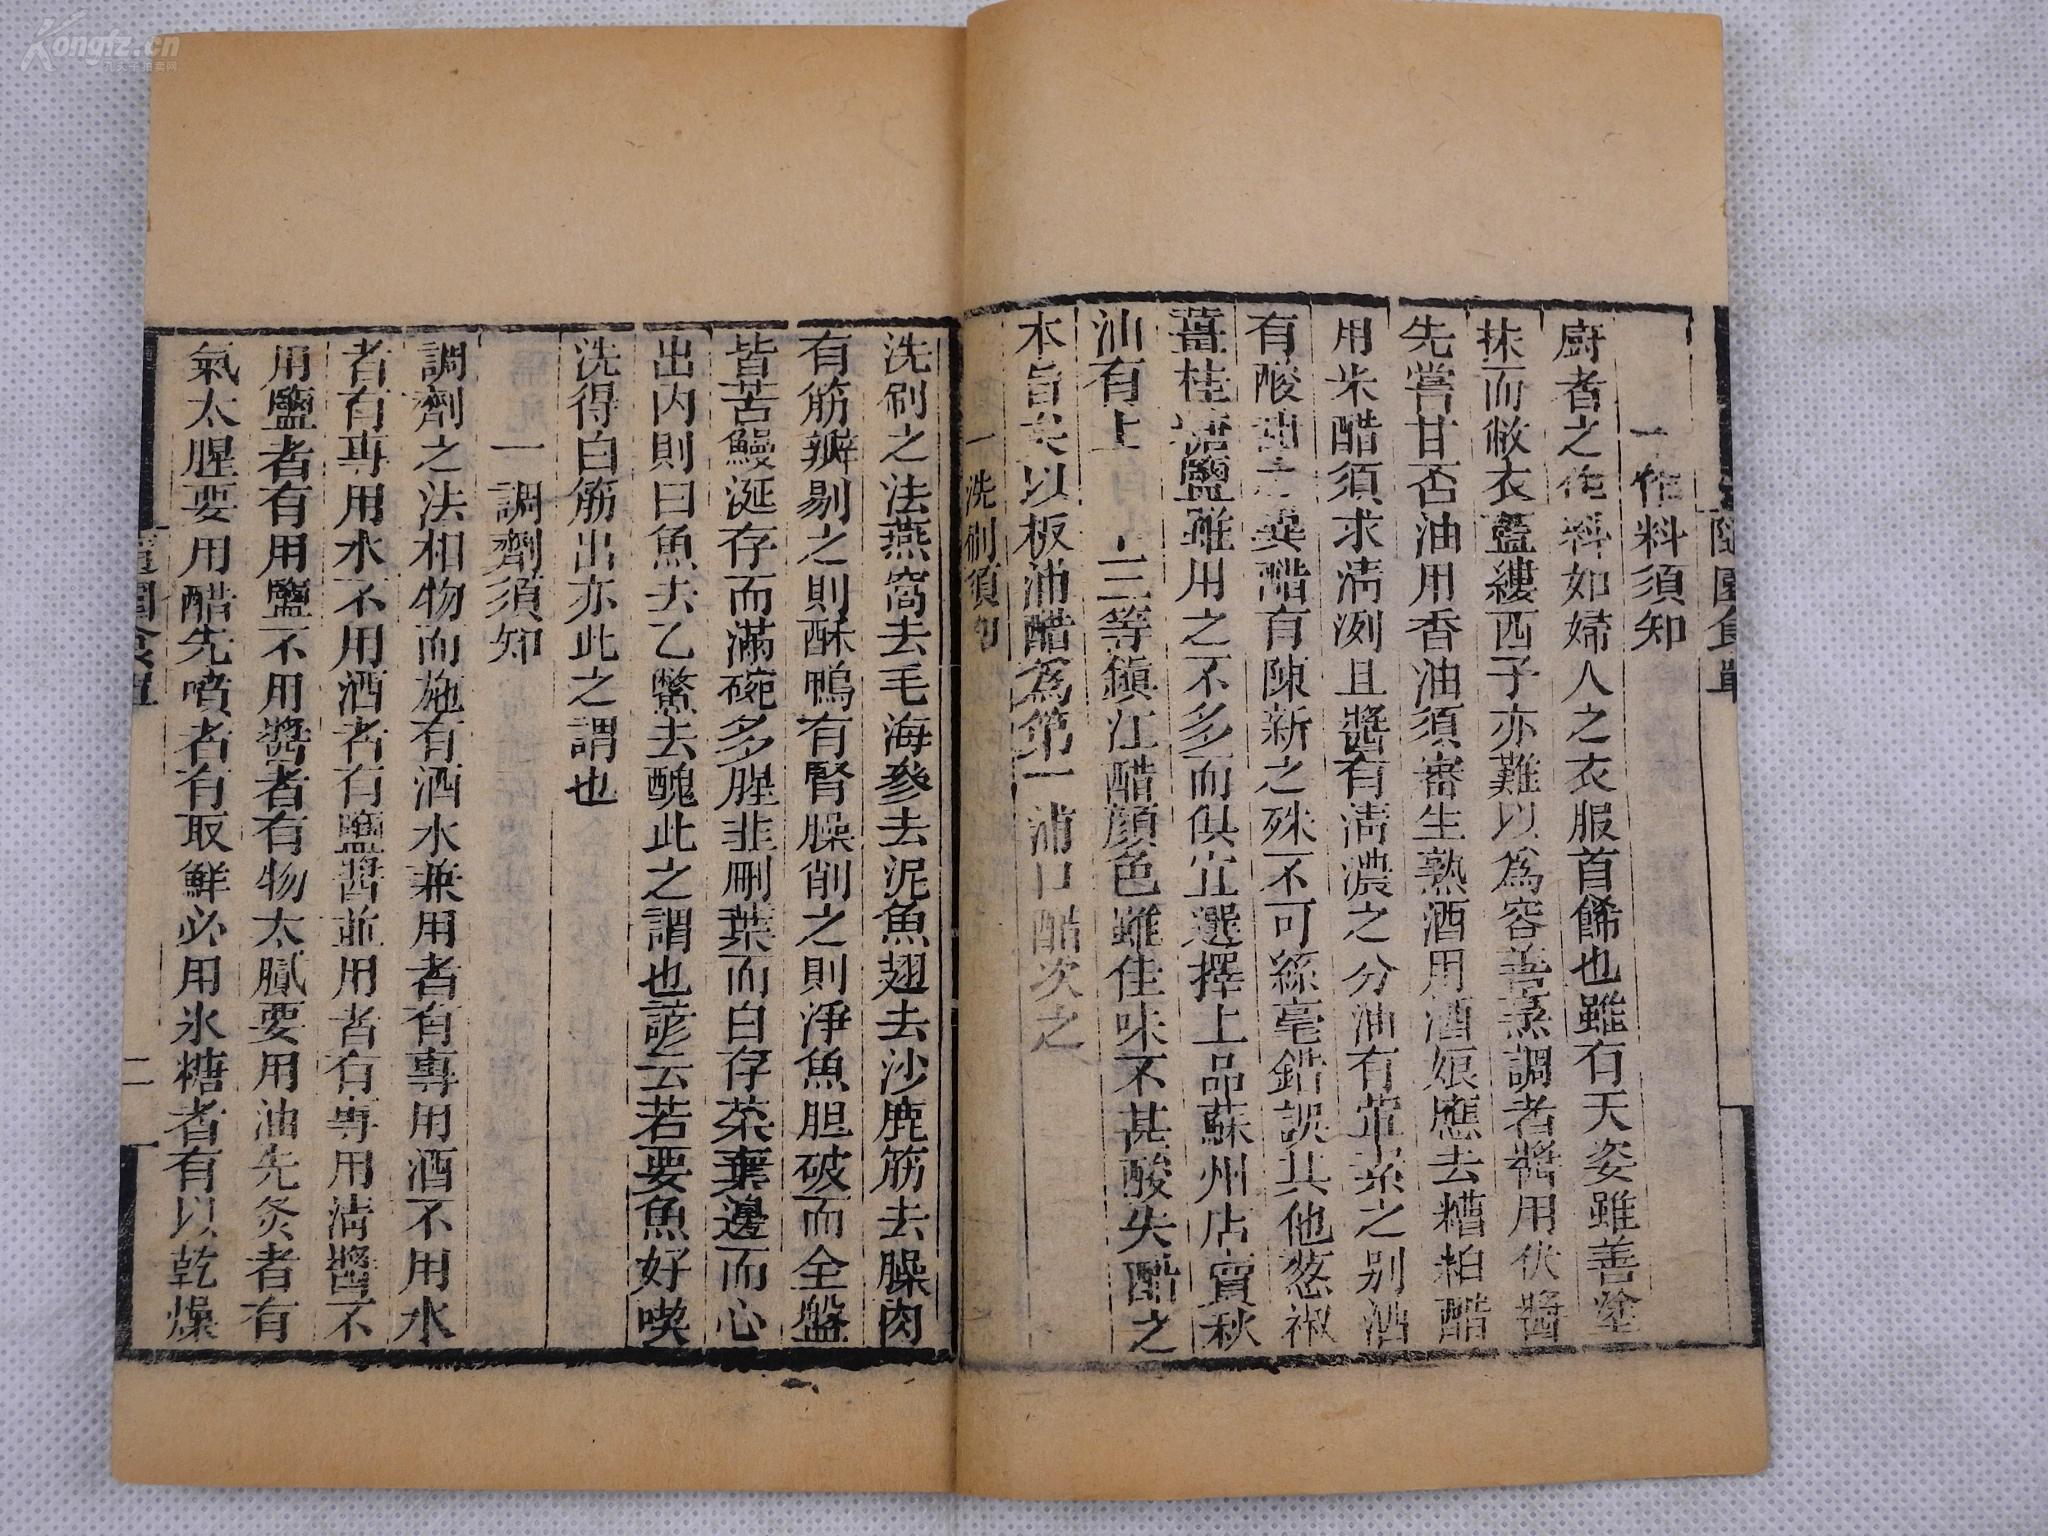 隨園食單
一作料須知
廚者之作料如婦人之衣服首餙也雖有天姿雖善塗
抹而敝衣藍縷西子亦難以為容善烹調者醬用伏醬
先嘗甘否油用香油須審生熟酒用酒娘應去糟粕醋
用米醋須求淸洌且醬有淸濃之分油有葷素之別酒
有酸甜之異醋有陳新之殊不可絲毫錯誤其他葱椒
薑桂糖鹽雖用之不多而俱宜選擇上品蘇州店賣秋
油有上 三等鎭江醋顔色雖佳味不甚酸失醋之
本旨矣以板浦醋為第一浦口醋次之
一洗刷須知
洗刷之法燕窩去毛海參去泥魚翅去沙鹿筋去臊肉
有筋瓣剔之則酥鴨有腎臊削之則淨魚胆破而全盤
皆苦鰻涎存而滿碗多腥韭刪葉而白存菜棄邊而心
出内則曰魚去乙鱉去醜此之謂也諺云若要魚好喫
洗得白筋出亦此之謂也
一調劑須知
調劑之法相物而施有酒水兼用者有專用酒不用水
者有專用水不用酒者有鹽醬並用者有專用淸醬不
用鹽者有用鹽不用醬者有物太膩要用油先灸者有
氣太腥要用醋先噴者有取鮮必用氷糖者有以乾燥
隨園食單
二
Kongfz.cn
孔夫子拍卖网